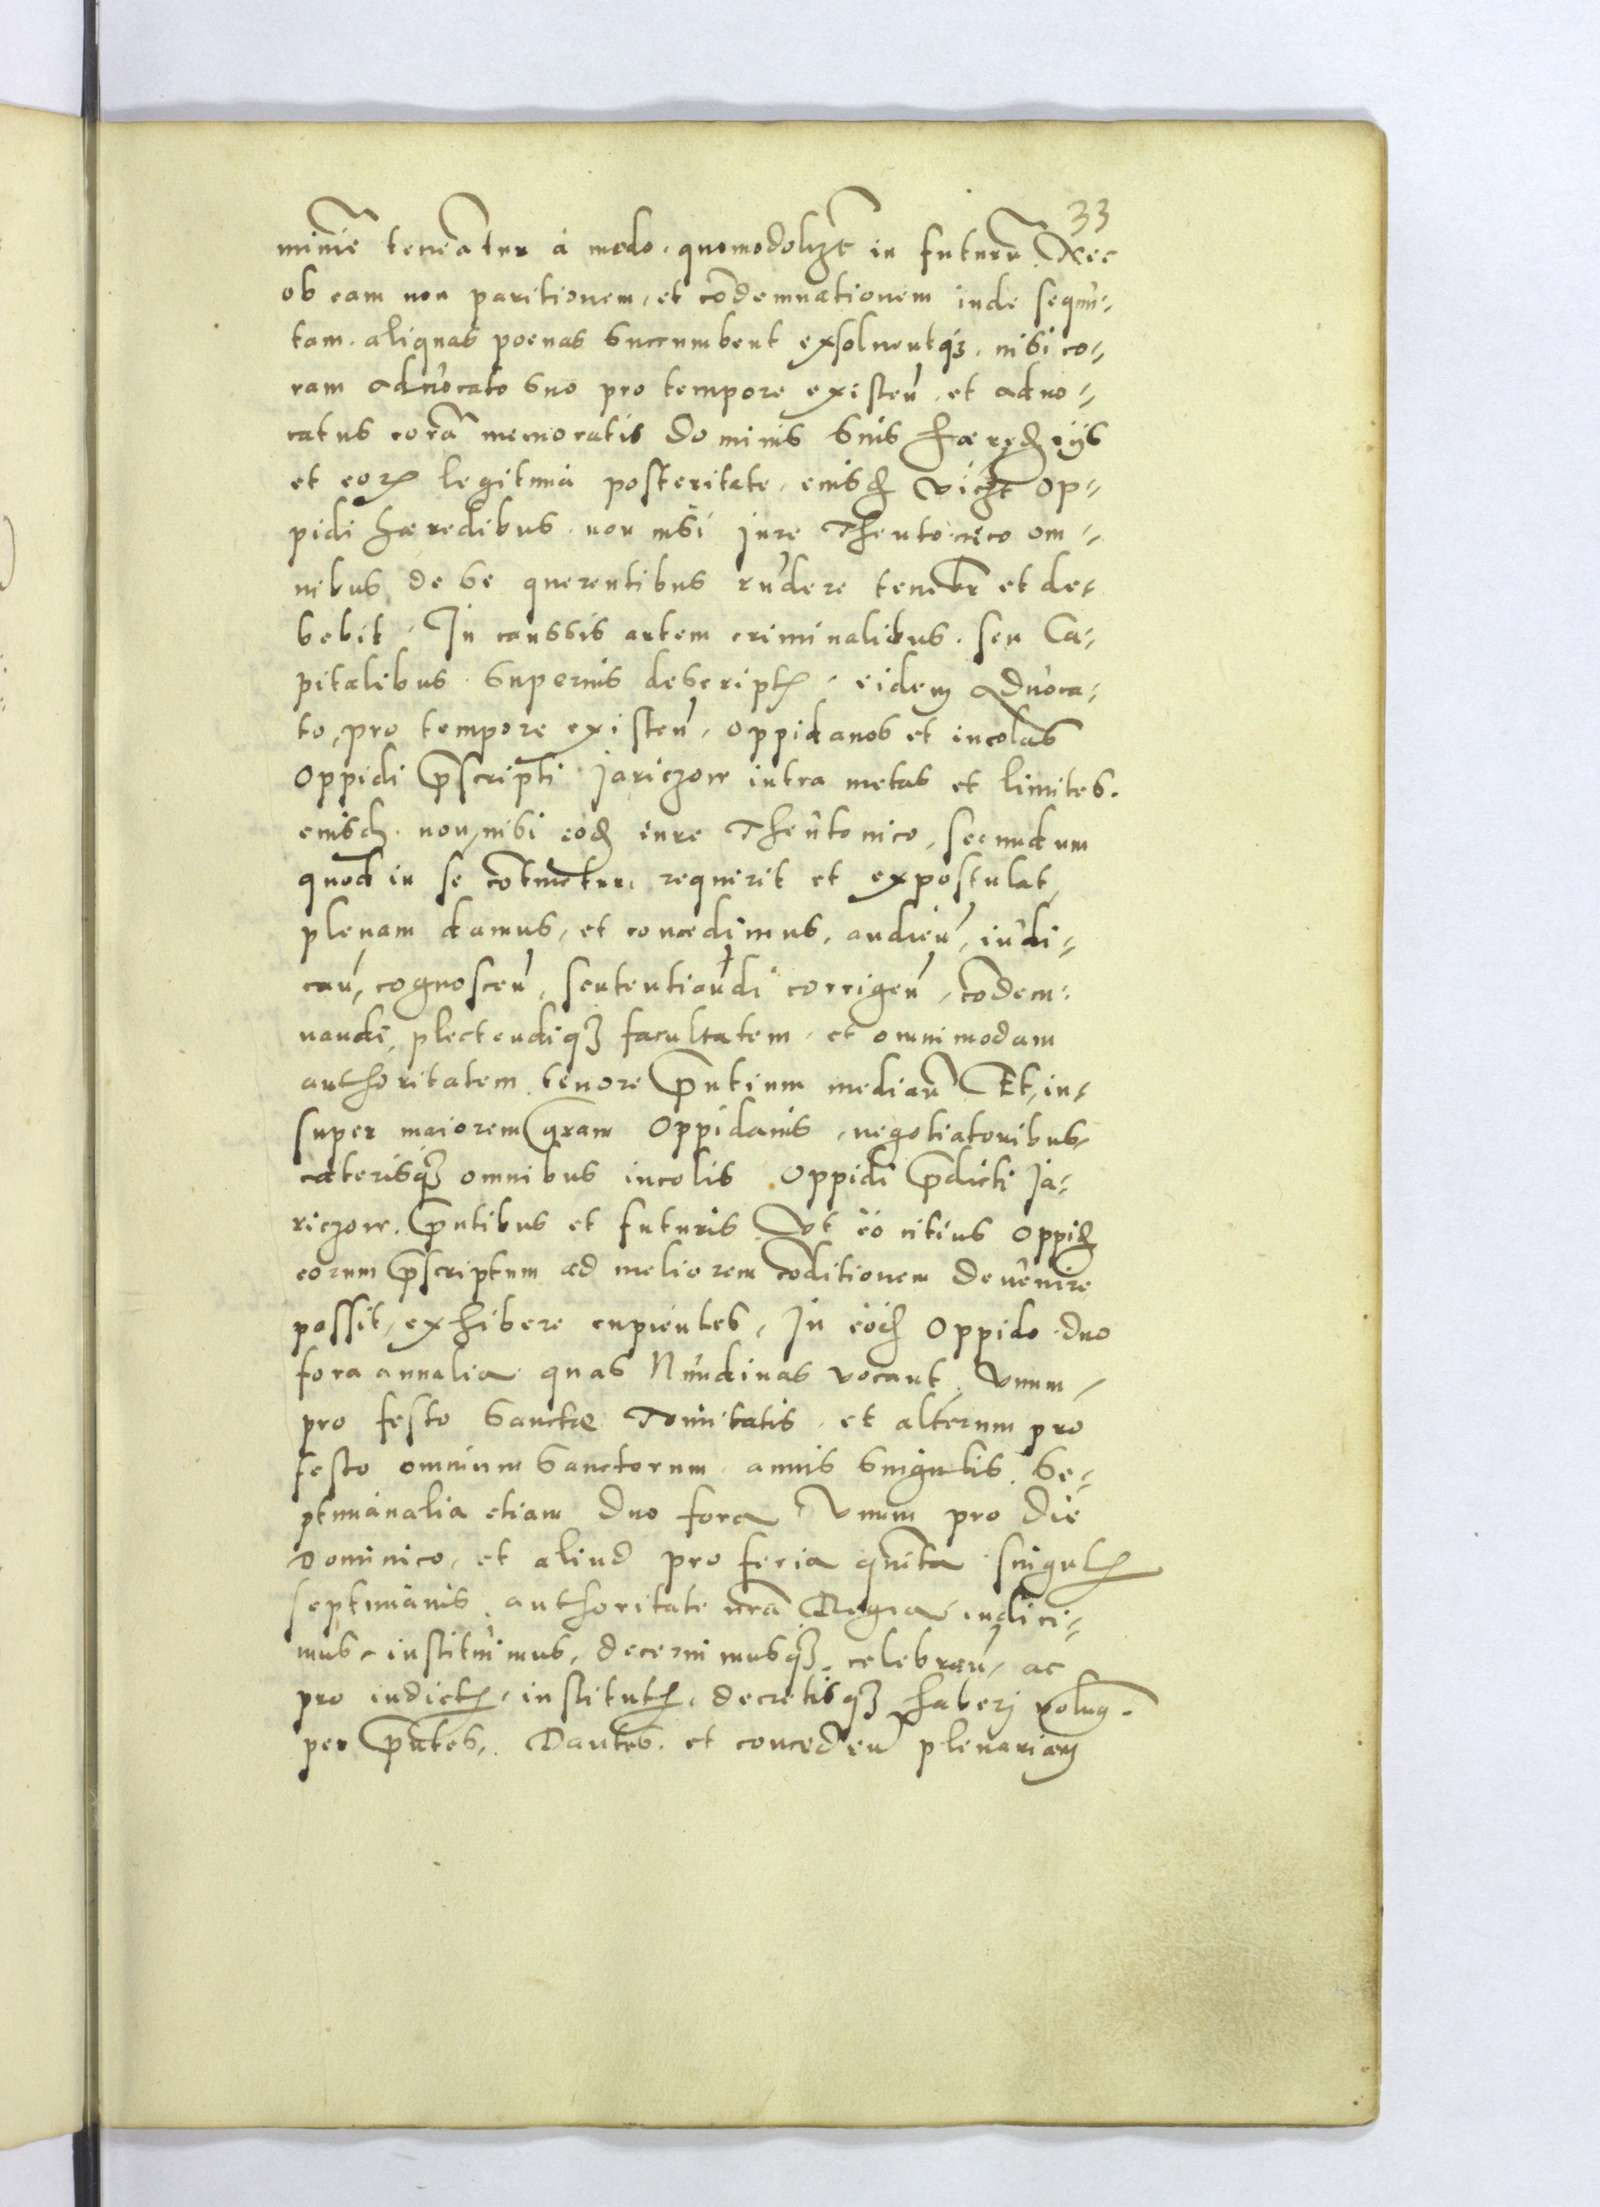 33
minie teneantur á modo quomodolꝫt in futurũ Nec
ob eam non paritionem, et cõdemnationem inde sequu-
tam aliquas poenas succumbent exsoluentqꝫ, nisi co-
ram aduocato suo pro tempore existeñ, et aduo-
catus corã memoratis Dominis suis
et eoꝝ legitima posteritate, eiusđ vicꝫt Op-
pidi hæredibus non nisi Jure Theutonico om-
nibus de se querentibus rñdere tenebr et de-
bebit. In caussis autem criminalibus seu Ca-
pitalibus superius descriptꝭ, eidem aduoca-
to, pro tempore existeñ, oppidanos et incolas
Oppidi p̃scripti Jariczow intra metas et limites.
eiusđ non nisi eođ iure Theutonico, secundum
quod in se cõtinetur, requirit et expostulat,
plenam damus, et concedimus, audieñ, iudi-
cañ, cognosceñ, sententiandi corrigeñ, cõdem-
nandi, plectendiqꝫ facultatem, et omnimodam
authoritatem tenore p̃ntium mediañ Et in-
super maiorem gr̃am Oppidanis, negotiatoribus,
cæterisqꝫ omnibus incolis Oppidi p̃dicti Ja-
riczow, p̃ntibus et futuris Vt eo citius Oppiđ
eorum p̃scriptum ad meliorem cõditionem deuenire
possit, exhibere cupientes, In eođ Oppido duo
fora annalia quas Nundinas vocant, vnum
pro festo Sanctæ Trinitatis et alterum pro
festo omnium Sanctorum annis singulis, Se-
ptimanalia etiam duo fora Vnum pro die
Dominico, et aliud pro feria quinta singulꝭ
septimanis authoritate nr̃a Regia indici-
mus, instituimus, decernimusqꝫ celebrañ, ac
pro indictꝭ, institutꝭ, decretisqꝫ haberj volum9
per p̃ntes, Dantes et concedeñ plenariam